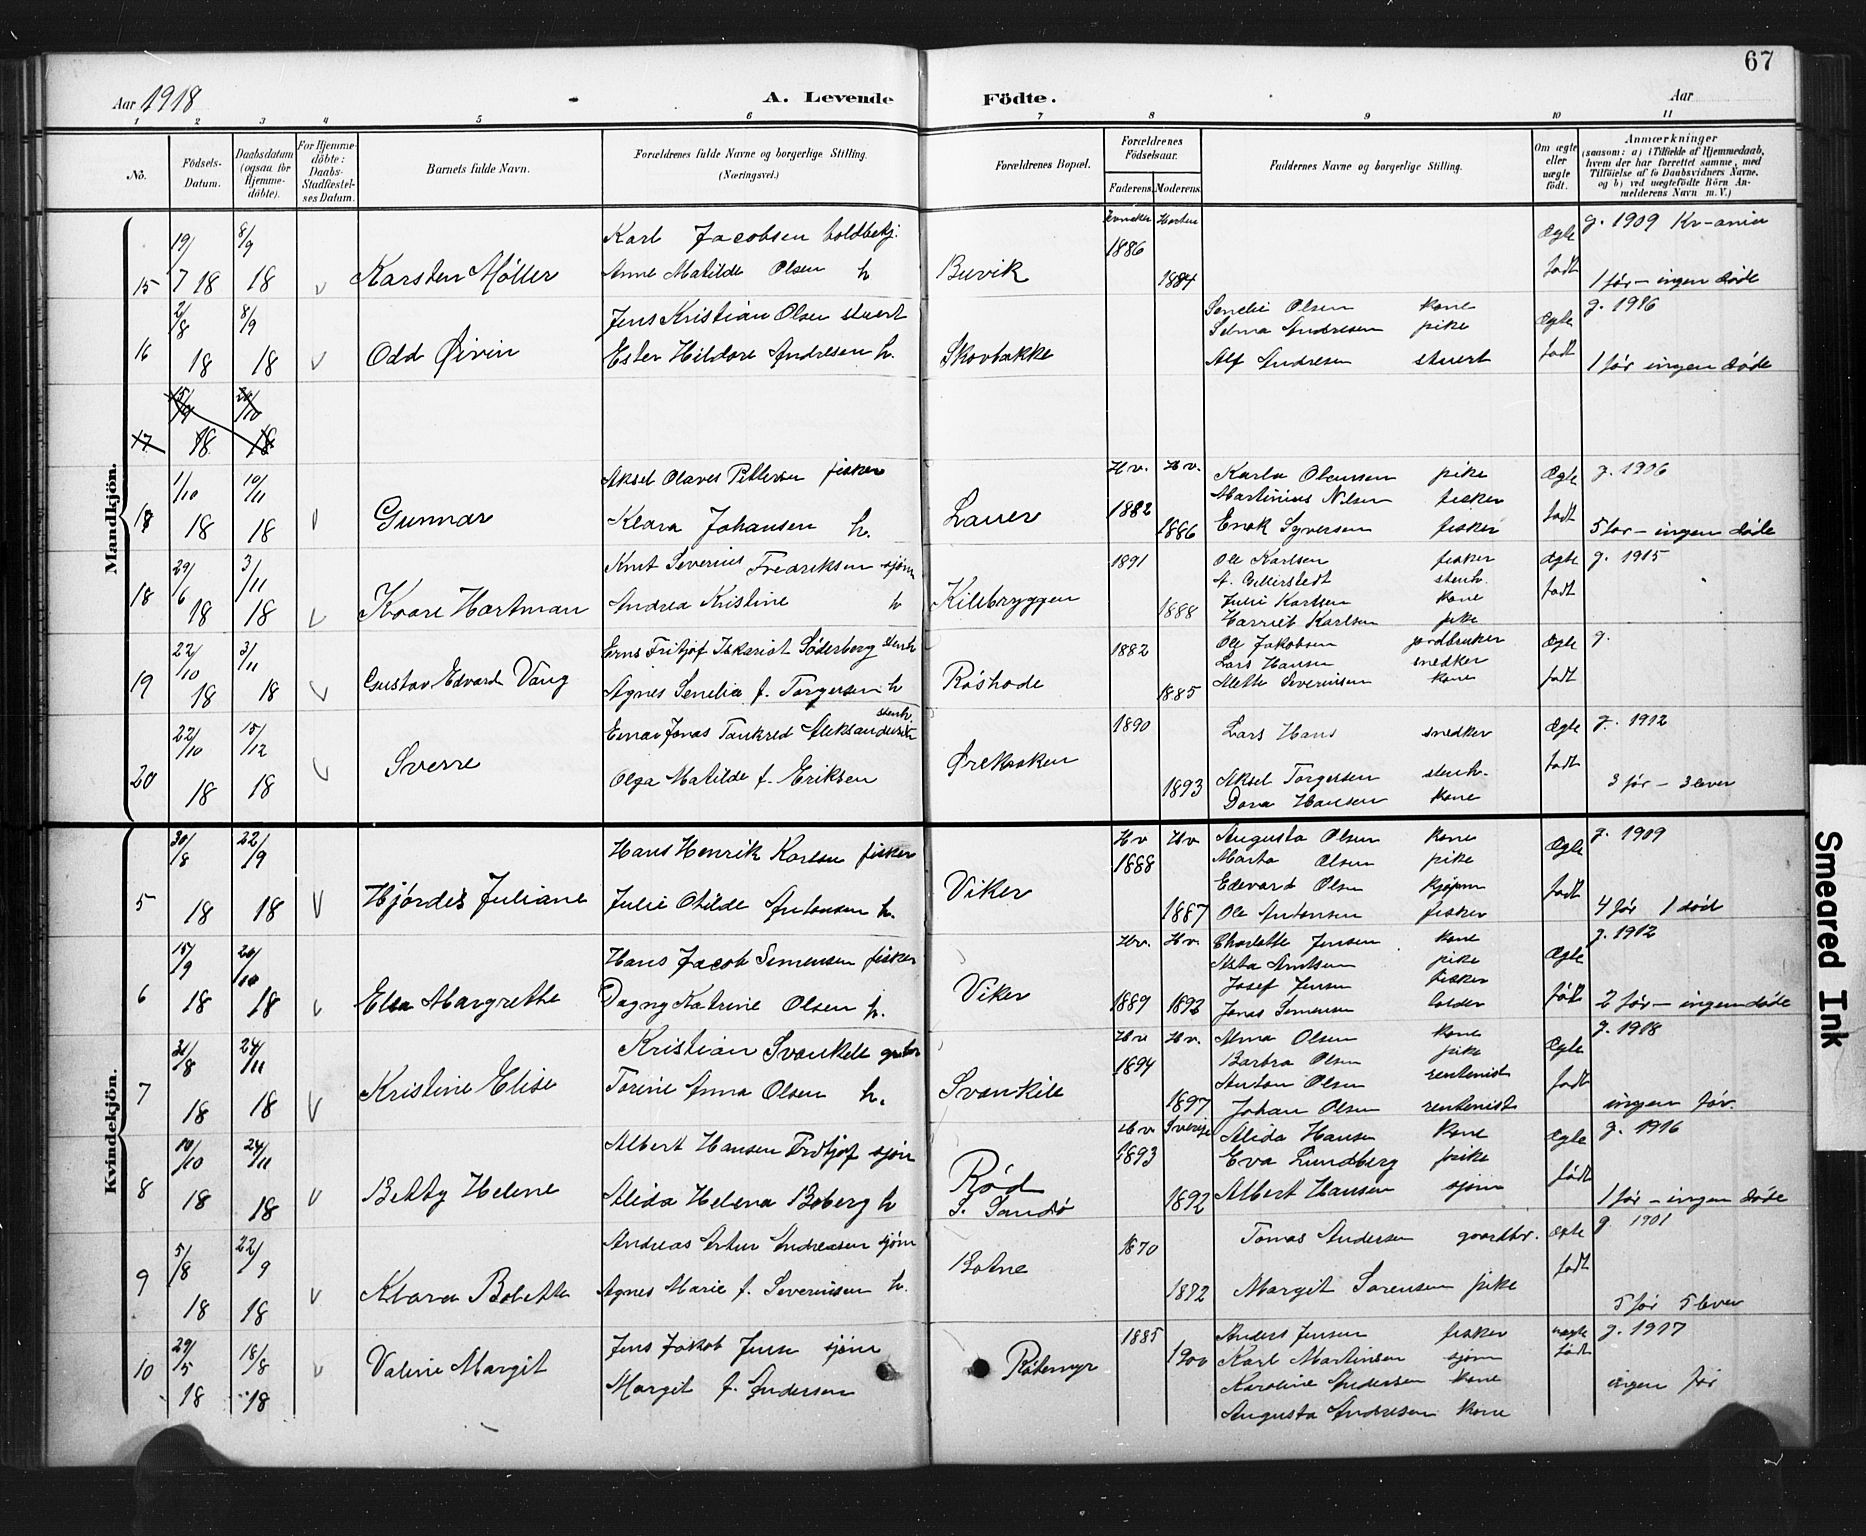 67
Aar 1918 A. Levende Födte. Aar
1 2 3 4 5 6 7 8 9 10 11
No. Födsels-Datum. Daabsdatum (ogsaa for Hjemme-döbte). For Hjemme-döbte: Daabs-Stadfæstel-ses Datum. Barnets fulde Navn. Forældrenes fulde Navne og borgerlige Stilling. (Næringsvei.) Forældrenes Bopæl. Forældrenes Födselsaar. Faderens. Moderens. Faddernes Navne og borgerlige Stilling. Om ægte eller uægte födt. Anmærkninger (saasom: a) i Tilfælde af Hjemmedaab, hvem der har forrettet samme, med Tilföielse af to Daabsvidners Navne, og b) ved uægtefödte Börn An-melderens Navn m. V.)
Mandkjön.
19/7 18 8/9 18 Karl Jacobsen toldbetj. Horten 1886 Ægte g. 1909 Kr-ania
15 v Karsten Møller Anne Matilde Olsen h Buvik 1884 født 1 før - ingen døde
2/8 8/9 Jens Kristian Olsen stuert Senelie Olsen kone Ægte g. 1916
Selma Andresen pike
16 18 18 v Odd Øivin Ester Hildore Andresen h. Skovbakke Alf Andresen stuert født 1 før ingen døde
15/9 20/10
17 18 18
1/10 10/11 Aksel Olaves Pettersen fisker Hv. Hv. Karla pike Ægte g. 1906
Martinius Nilsen fisker
18 18 18 v Gunnar Klara Johansen h. Lauer 1882 1886 Enok Syversen fisker født 5 før - ingen døde
29/6 3/11 Knut Severius Fredriksen sjøm 1891 Ole Karlsen fisker Ægte g. 1915
stenh.
18 18 18 v Kaare Hartman Andrea Kristine h Kilebryggen 1888 Julie Karlsen kone født
Harriet Karlsen pike
22/10 3/11 Erns Fritjof Iskariot Söderberg stenh 1882 Ole Jakobsen jordbruker Ægte g.
Lars Hansen snedker
19 18 18 v Gustav Edvard Vang Agnes Senelia f. Torgersen h Røshode 1885 Mette Severinsen kone født
22/10 15/12 Einar Jonas Tankred Aleksandersen stenh. 1890 Lars Hans snedker Ægte g. 1912
20 18 18 v Sverre Olga Matilde f. Eriksen Ørekroken 1893 Aksel Torgersen stenh. født 3 før - 3 lever
Dora Hansen kone
Kvindekjön.
30/8 22/9 Hans Henrik Karlsen fisker Hv Hv Augusta Olsen kone Ægte g. 1909
1888 Marta Olsen pike
Edevard Olsen kjøpm
5 18 18 v Hjördis Juliane Julie Otilde Antonsen h. Viker 1887 Ole Antonsen fisker født 4 før 1 død
15/9 20/10 Hans Jacob Simensen fisker Hv. Hv. Charlotte Jensen kone Ægte g. 1912
pike
Josef Jensen fisker
6 18 18 v Elsa Margrethe Dagny Katrine Olsen h. Viker 1889 1892 Jonas Simensen født 2 før - ingen døde
31/8 24/11 Kristian Svankile Hv Hv. Alma Olsen kone Ægte g. 1918
1894 Barbra Olsen pike
Anton Olsen rentenist
7 18 18 v Kristine Elise Torine Anna Olsen h. Svankile 1897 Johan Olsen rentenist født ingen før.
10/10 24/11 Albert Hansen Fridtjof sjøm Hv Sverige Alida Hansen kone Ægte g. 1916
1893 Eva Lundberg pike
8 18 18 v Betty Helene Alida Helena Boberg h Rød S. Sandø 1892 Albert Hansen sjøm født 1 før - ingen døde
5/8 22/9 Andreas Artur Andreasen sjøm 1870 Tomas Andersen gaardbr. ægte g. 1901
9 18 18 v Klara Bolette Agnes Marie f. Severinsen h. Botne 1872 Margit Sørensen pike født 5 før 5 lever
29/5 18/8 Jens Jakob Jense sjøm 1885 Anders Jensen fisker uægte g. 1917
10 18 18 v Valerie Margit Margit f. Andersen Røtemyr 1900 Karl Martinsen sjøm født
Karoline Andersen kone ingen før
Augusta Andresen kone
Smeared Ink